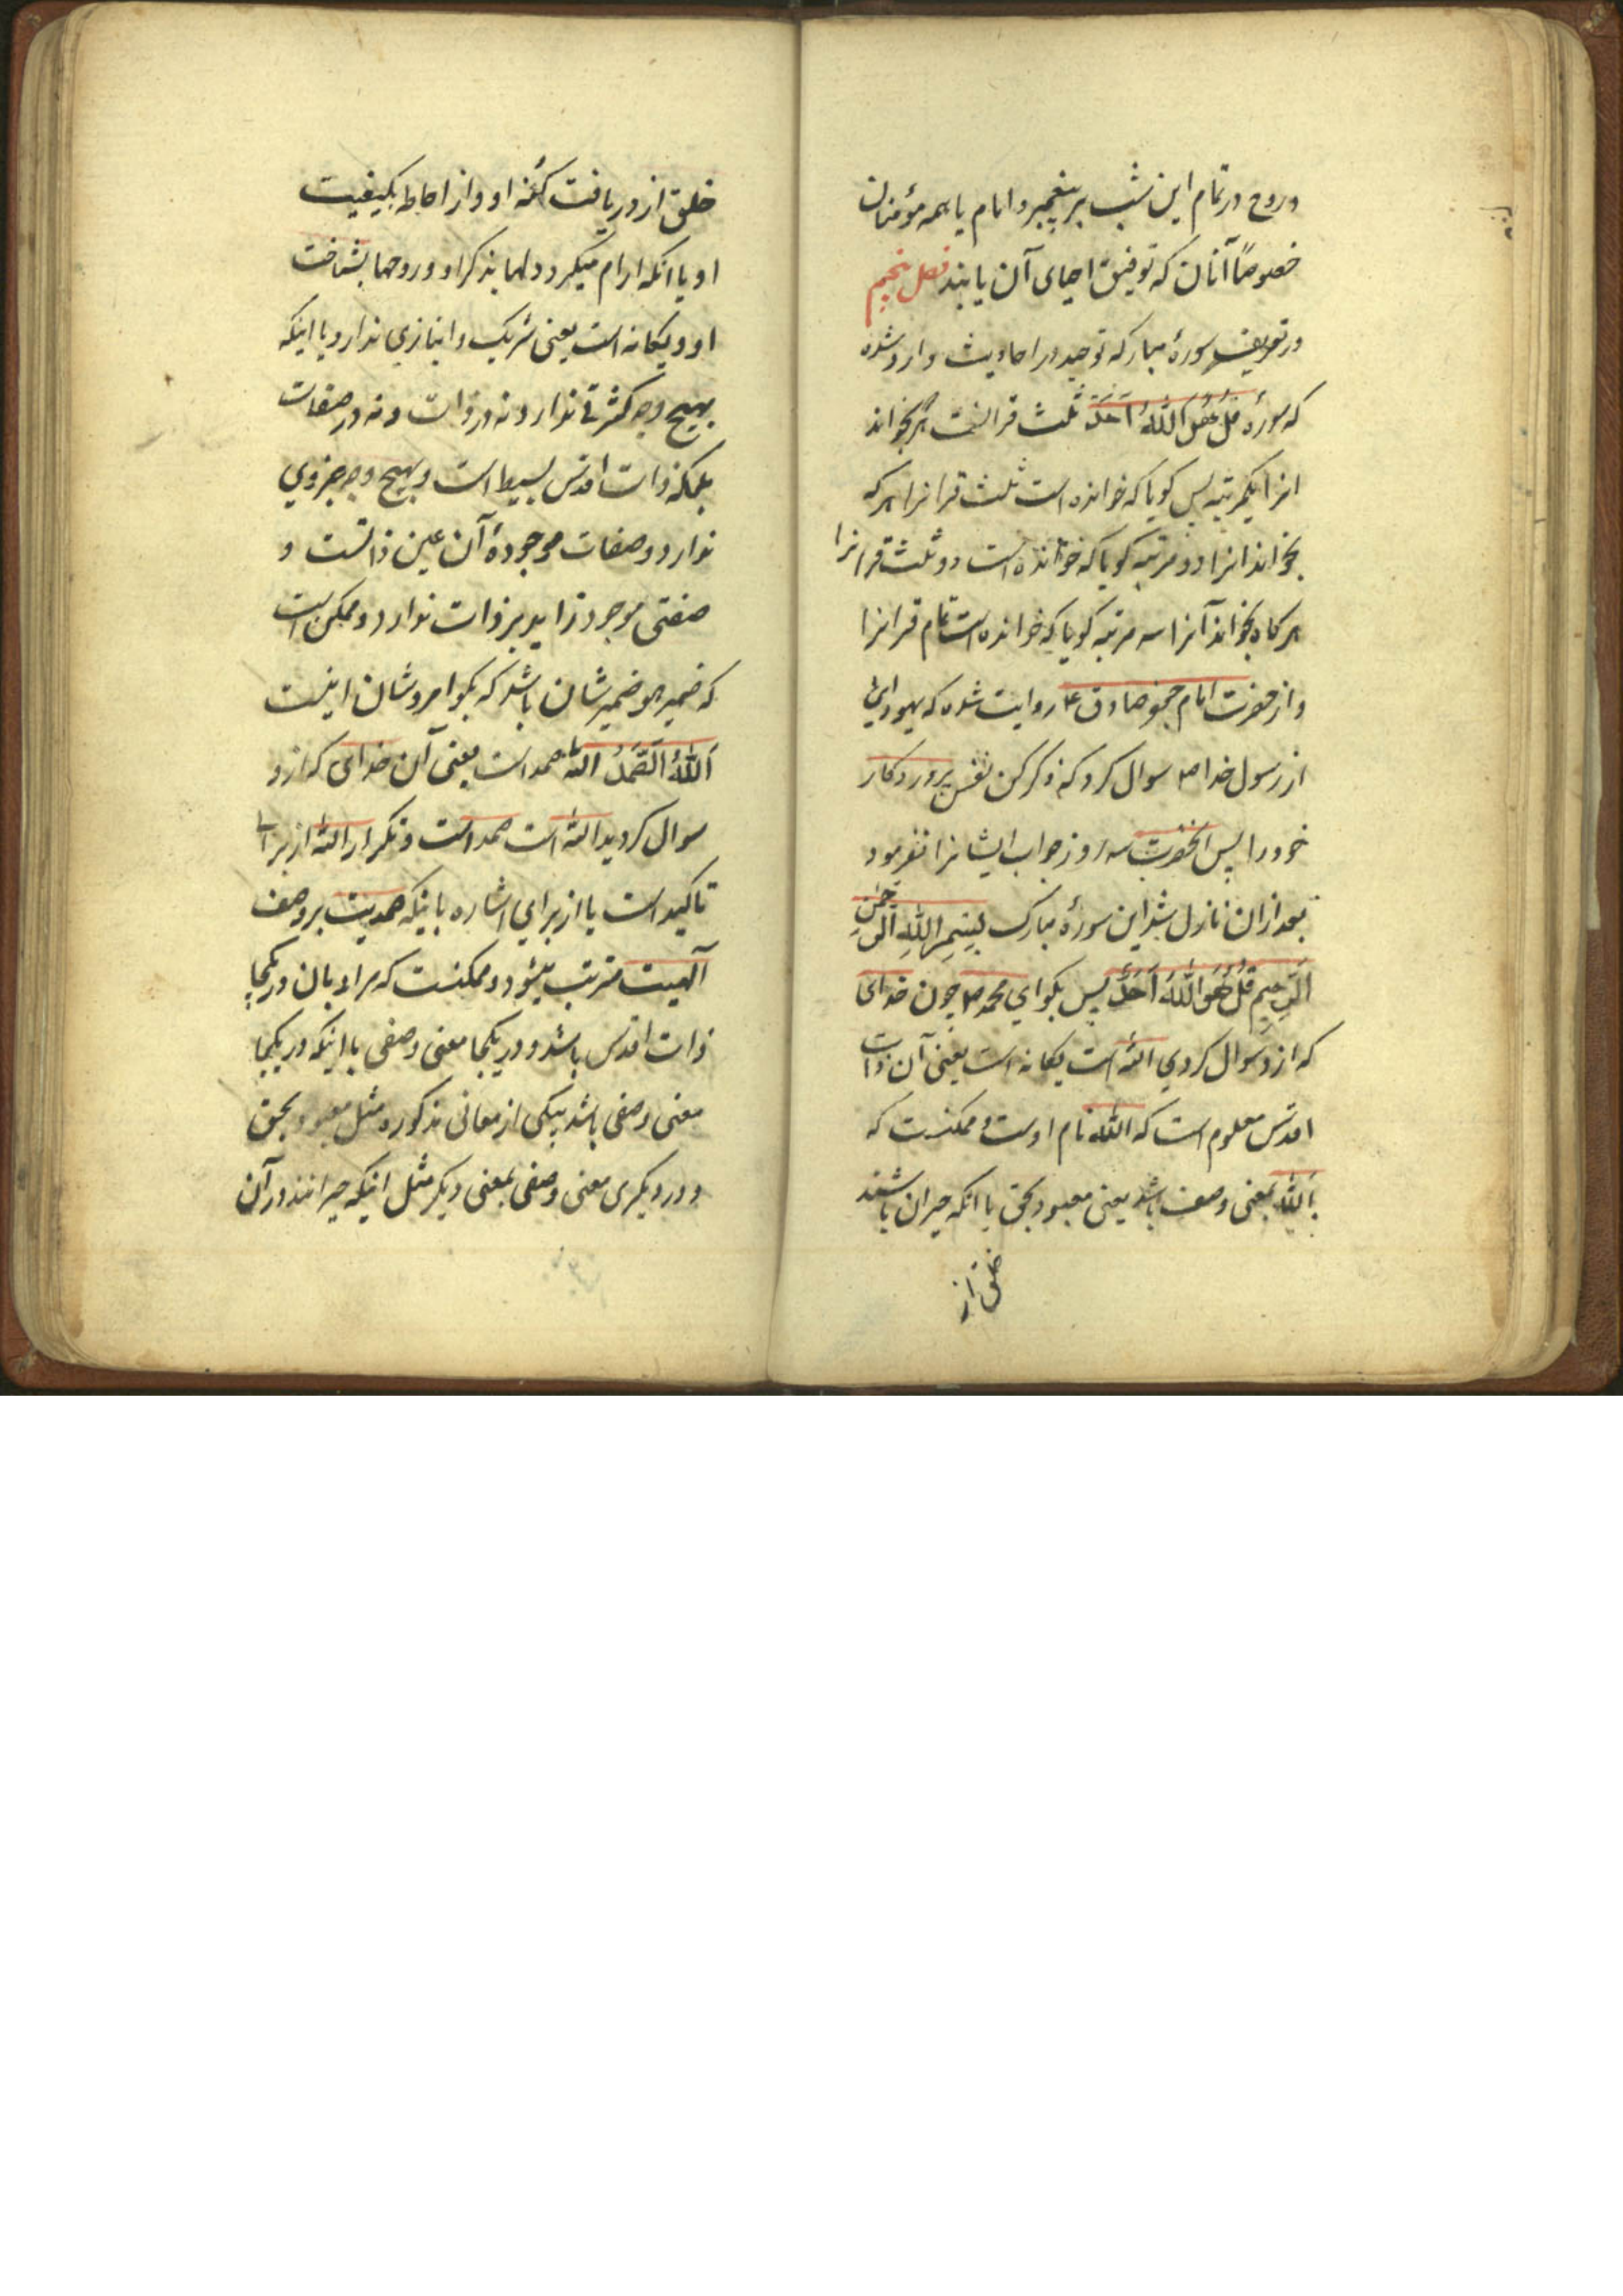 و روح در تمام این شب بر پیغمبر و امام یا همه مؤمنان
خصوصًا آنان که توفیق احیای آن یابند فصل پنجم
در تعریف سورهٔ مبارکه توحید در احادیث وارد شده
که سورهٔ قُلْ هُوَ اللّٰهُ اَحَدٌ ثلث قرانست هر که بخواند
انرا یکمرتبه پس کویا که خوانده است ثلث قرانرا هر که
بخواند انرا دو مرتبه کویا که خوانده است دو ثلث قرانرا
هر کاه بخواند آنرا سه مرتبه کویا که خوانده است تمام قرانرا
و از حضرت امام جعفر صادق ع روایت شده که یهودان
از رسول خدا ص سوال کردند که ذکر کن نفس پروردکار
خود را پس انحضرت سه روز جواب ایشانرا نفرمود
بعد ازان نازل شد این سورهٔ مبارک بِسْمِ اللّٰهِ الرَّحْمٰنِ
الرَّحِیمِ قُلْ هُوَ اللّٰهُ اَحَدٌ پس بکو ای محمد ص چون خدای
که ازو سوال کردی اللّٰه است یکانه است یعنی آن ذات
اقدس معلوم است که اللّٰه نام اوست و ممکنست که
باللّٰه بمعنی وصف باشد یعنی معبود بحق یا انکه حیران باشند
خلق از
خلق از دریافت کُنه او و از احاطه بکیفیت
او یا انکه ارام میکیرد دلها بذکر او و روحها بشناخت
او و یکانه است یعنی شریک و انبازی ندارد یا اینکه
بهیچ وجه کثرتی ندارد نه در ذات و نه در صفات
بلکه ذات اقدس بسیط است و بهیچ وجه جزوی
ندارد و صفات موجودهٔ آن عین ذاتست و
صفتی موجود زاید بر ذات ندارد و ممکن است
که ضمیر هو ضمیر شان باشد که بکو امر و شان اینست
اَللّٰهُ الصَّمَدُ اللّٰه صمد است یعنی آن خدای که ازو
سوال کردید اللّٰه است صمد است و تکرار اللّٰه از برای
تاکید است یا از برای اشاره باینکه صمدیت بر وصف
آلهیت مترتب میشود و ممکنست که مراد بان در یکجا
ذات اقدس باشد و در یکجا معنی وصفی یا اینکه در یکجا
معنی وصفی باشد بیکی از معانی مذکوره مثل معبود بحق
و در دیکری معنی وصفی بمعنی دیکر مثل اینکه حیرانند در آن